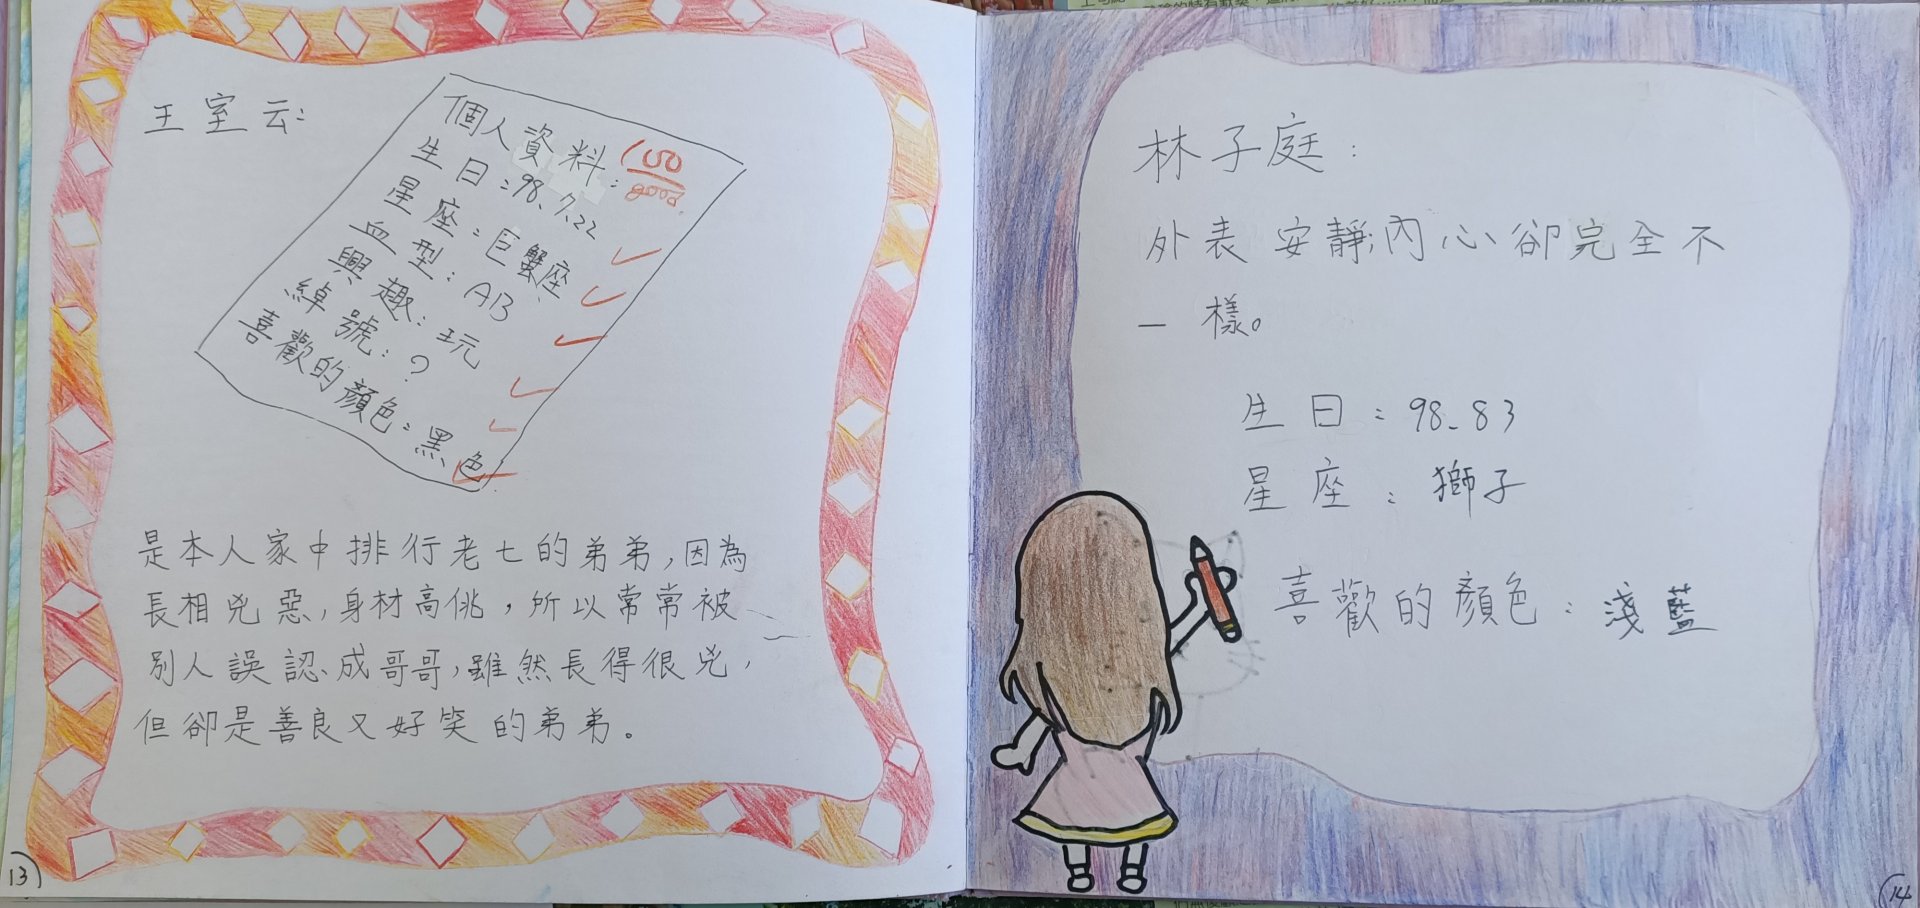 王室云:
個人資料:
150
good.
生日:98、7、22
星座:巨蟹座
血型:AB
興趣:玩
綽號:?
喜歡的顏色:黑色
是本人家中排行老七的弟弟,因為
長相兇惡,身材高佻,所以常常被
別人誤認成哥哥,雖然長得很兇,
但卻是善良又好笑的弟弟。
13
林子庭:
外表安靜,內心卻完全不
一樣。
生日:98.83
星座:獅子
喜歡的顏色:淺藍
14